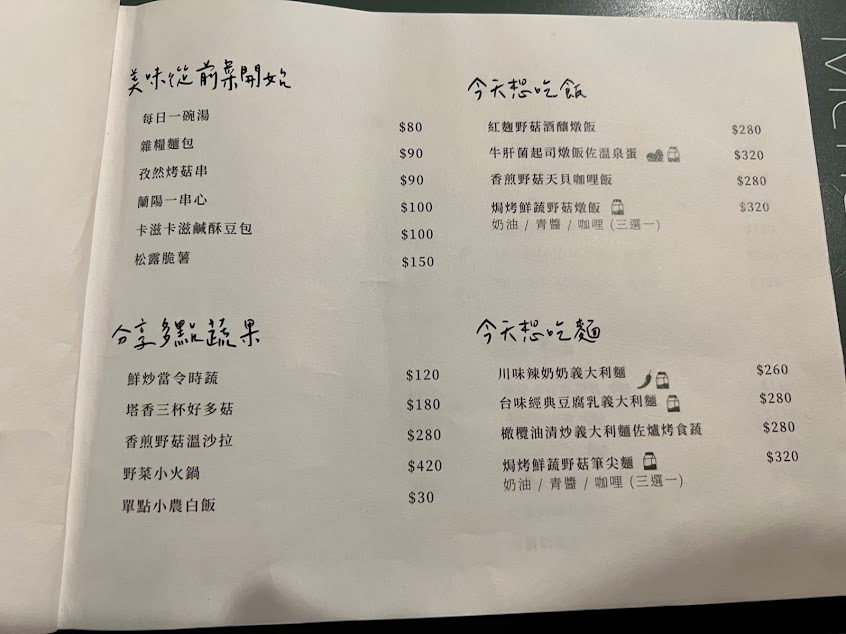 美味從前菜開始
每日一碗湯 $80
雜糧麵包 $90
孜然烤菇串 $90
蘭陽一串心 $100
卡滋卡滋鹹酥豆包 $100
松露脆薯 $150
分享多點蔬果
鮮炒當令時蔬 $120
塔香三杯好多菇 $180
香煎野菇溫沙拉 $280
野菜小火鍋 $420
單點小農白飯 $30
今天想吃飯
紅麴野菇酒釀燉飯 $280
牛肝菌起司燉飯佐溫泉蛋 $320
香煎野菇天貝咖哩飯 $280
焗烤鮮蔬野菇燉飯 $320
奶油 / 青醬 / 咖哩 (三選一)
今天想吃麵
川味辣奶奶義大利麵 $260
台味經典豆腐乳義大利麵 $280
橄欖油清炒義大利麵佐爐烤食蔬 $280
焗烤鮮蔬野菇筆尖麵 $320
奶油 / 青醬 / 咖哩 (三選一)